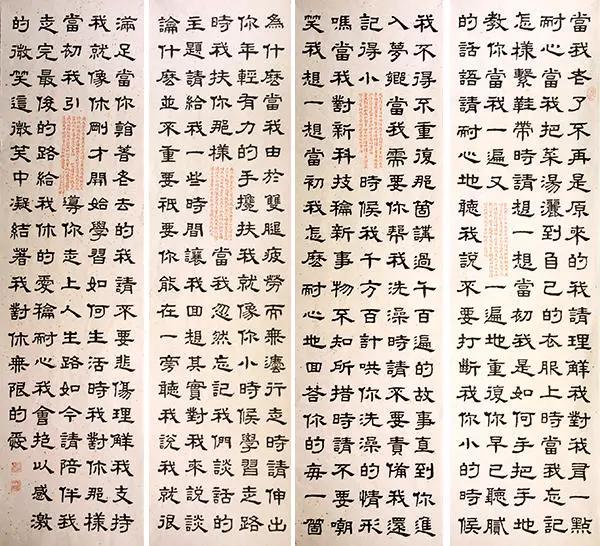 當我老了不再是原來的我請理解我對我有一點
耐心當我把菜湯灑到自己的衣服上時當我忘記
怎樣繫鞋帶時請想一想當初我是如何手把手地
教你當我一遍又一遍地重復你早已聽膩
的話語請耐心地聽我說不要打斷我你小的時候
我不得不重復那箇講過千百遍的故事直到你進
入夢鄉當我需要你幫我洗澡時請不要責備我還
記得小時候我千方百計哄你洗澡的情形
嗎當我對新科技和新事物不知所措時請不要嘲
笑我想一想當初我怎麼耐心地回答你的每一箇
為什麼當我由於雙腿疲勞而無灋行走時請伸出
你年輕有力的手攙扶我就像你小時候學習走路
時我扶你那樣當我忽然忘記我們談話的
主題請給我一些時間讓我回想其實對我來說談
論什麼並不重要祇要你能在一旁聽我說我就很
滿足當你看著老去的我請不要悲傷理解我支持
我就像你剛才開始學習如何生活時我對你那樣
當初我引導你走上人生路如今請陪伴我
走完最後的路給我你的愛和耐心我會抱以感激
的微笑這微笑中凝結著我對你無限的愛